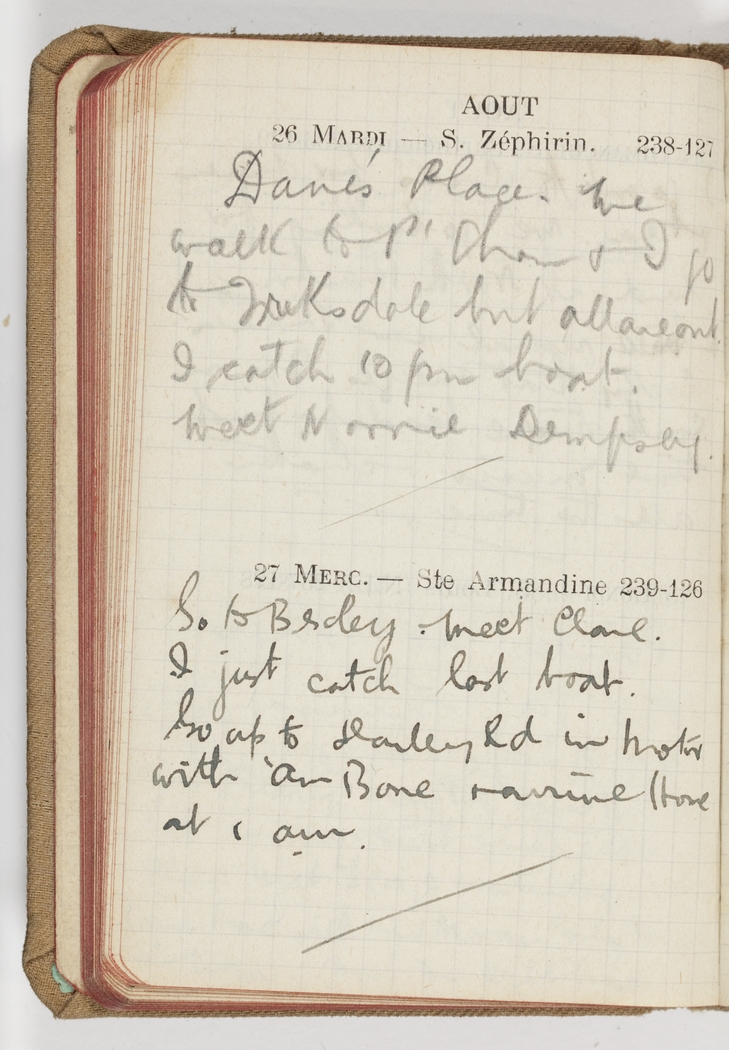 AOUT
26 MARDI — S. Zéphirin. 238-127
Dane's Place. We
walk to Pt Cham & I go
to but all are out
I catch 10 pm boat.
Meet Norrie Dempsey.
27 MERC. — Ste Armandine 239-126
Go to Bexley - meet Clare.
I just catch last boat.
Go up to Rd in motor
with Bone & arrive Home
at 1 am.